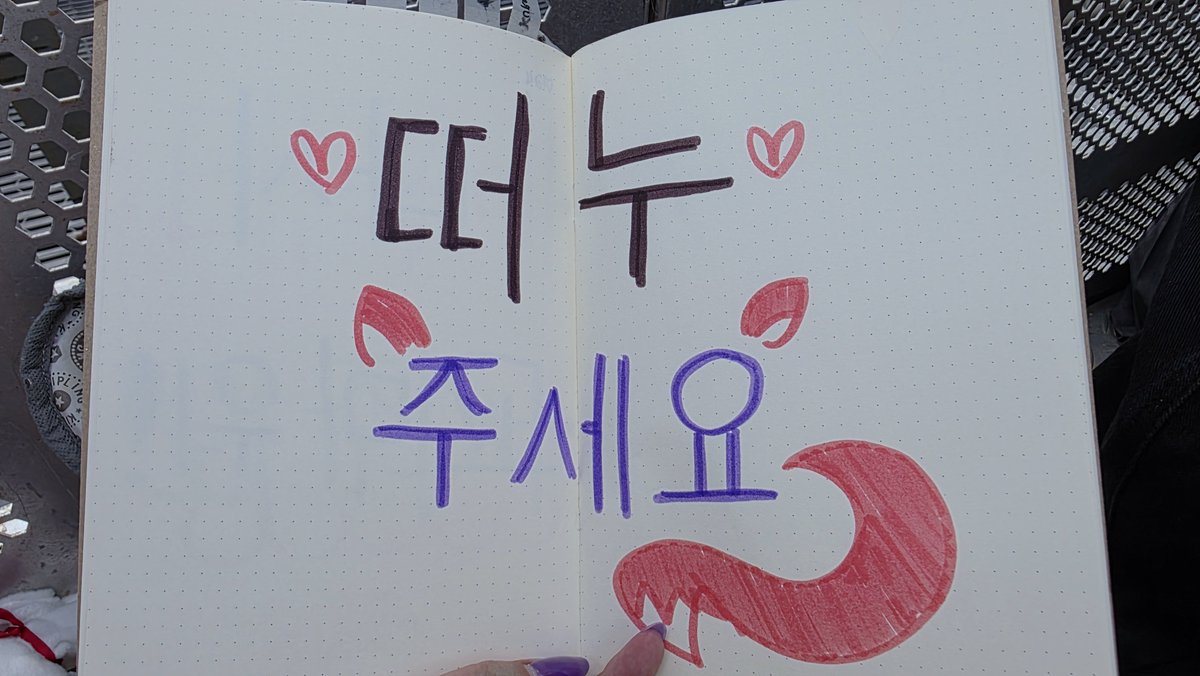 떠누
주세요
KIPLING